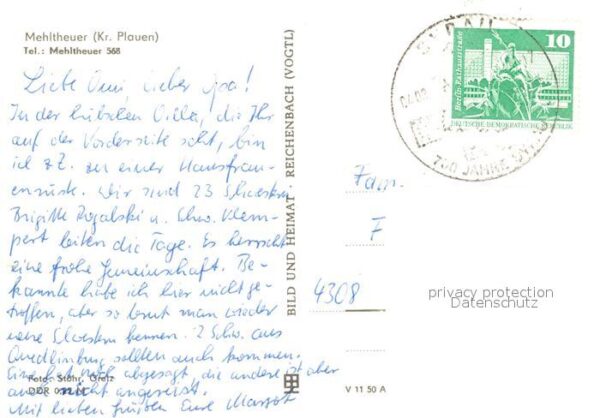 Mehltheuer (Kr. Plauen)
Tel.: Mehltheuer 568
Liebe Omi, lieber Opa!
In der hübschen Villa, die Ihr
auf der Vorderseite seht, bin
ich z.Z. zu einer Hausfrau-
enrüste. Wir sind 23 Schwestern
Brigitte Rogalski u. Schw. Klem-
pert leiten die Tage. Es herrscht
eine frohe Gemeinschaft. Be-
kannte habe ich hier nicht ge-
troffen, aber so lernt man wieder
neue Schwestern kennen. 2 Schw. aus
Quedlinburg sollten auch kommen.
Eine hat noch abgesagt, die andere ist aber
auch nicht angereist.
Mit lieben Grüßen Eure Margot
Foto: Stöhr, Greiz
DDR 0,20 M
BILD UND HEIMAT REICHENBACH (VOGTL)
V 11 50 A
10
Berlin, Rathausstraße
DEUTSCHE DEMOKRATISCHE REPUBLIK
750 JAHRE
Fam.
F
4308
privacy protection
Datenschutz